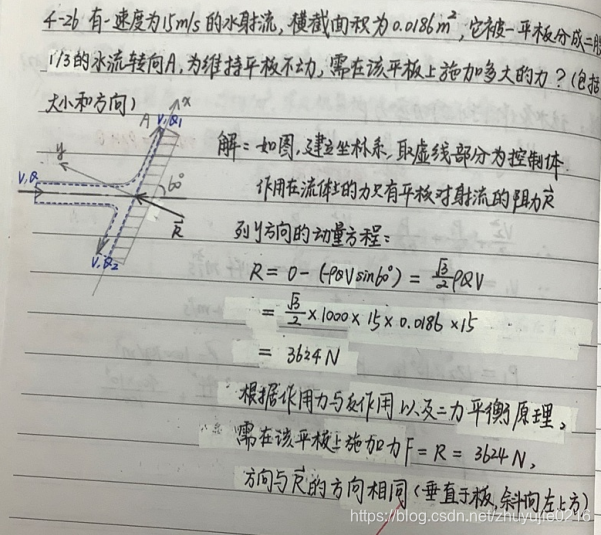 4-26 有一速度为15m/s的水射流,横截面积为0.0186m²,它被一平板分成二股
1/3的水流转向A,为维持平板不动,需在该平板上施加多大的力?(包括
大小和方向)
解:如图,建立坐标系,取虚线部分为控制体.
作用在流体上的力只有平板对射流的阻力R⃗
列y方向的动量方程:
R = 0 - (-ρQVsin60°) = √3/2 ρQV
= √3/2 × 1000 × 15 × 0.0186 × 15
= 3624 N
根据作用力与反作用以及二力平衡原理,
需在该平板上施加力F = R = 3624 N,
方向与R⃗的方向相同(垂直于板,斜向左上方)
x
A
V,Q₁
y
60°
V,Q
R⃗
V,Q₂
https://blog.csdn.net/zhuyujie0216